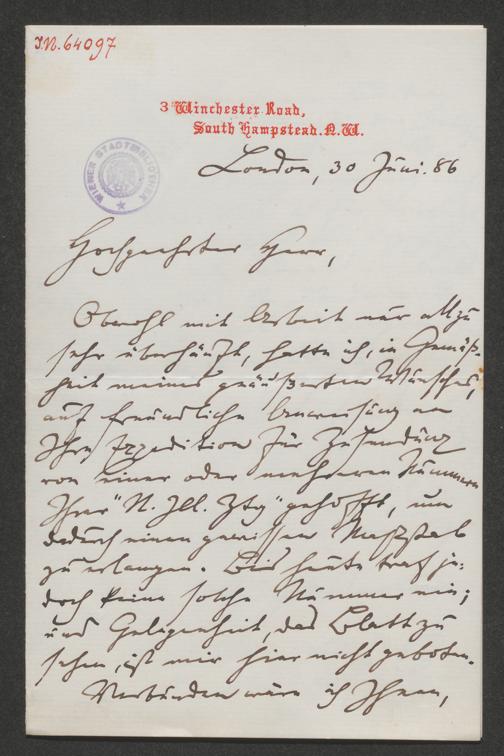 J.N. 64097
3 Winchester Road,
South Hampstead. N.W.
WIENER STADTBIBLIOTHEK
London, 30 Juni. 86
Hochgeehrter Herr,
Obwohl mit Arbeit nur allzu
sehr überhäuft, hatte ich, in Gemäß-
heit meines geäußerten Wunsches,
auf freundliche Anweisung an
Ihre Expedition für Zusendung
von einer oder mehreren Nummern
Ihrer "N. Ill. Ztg" gehofft, um
dadurch einen gewissen Maßstab
zu erlangen. Bis heute traf je-
doch keine solche Nummer ein;
und Gelegenheit, das Blatt zu
sehen, ist mir hier nicht geboten.
Verbunden wäre ich Ihnen,